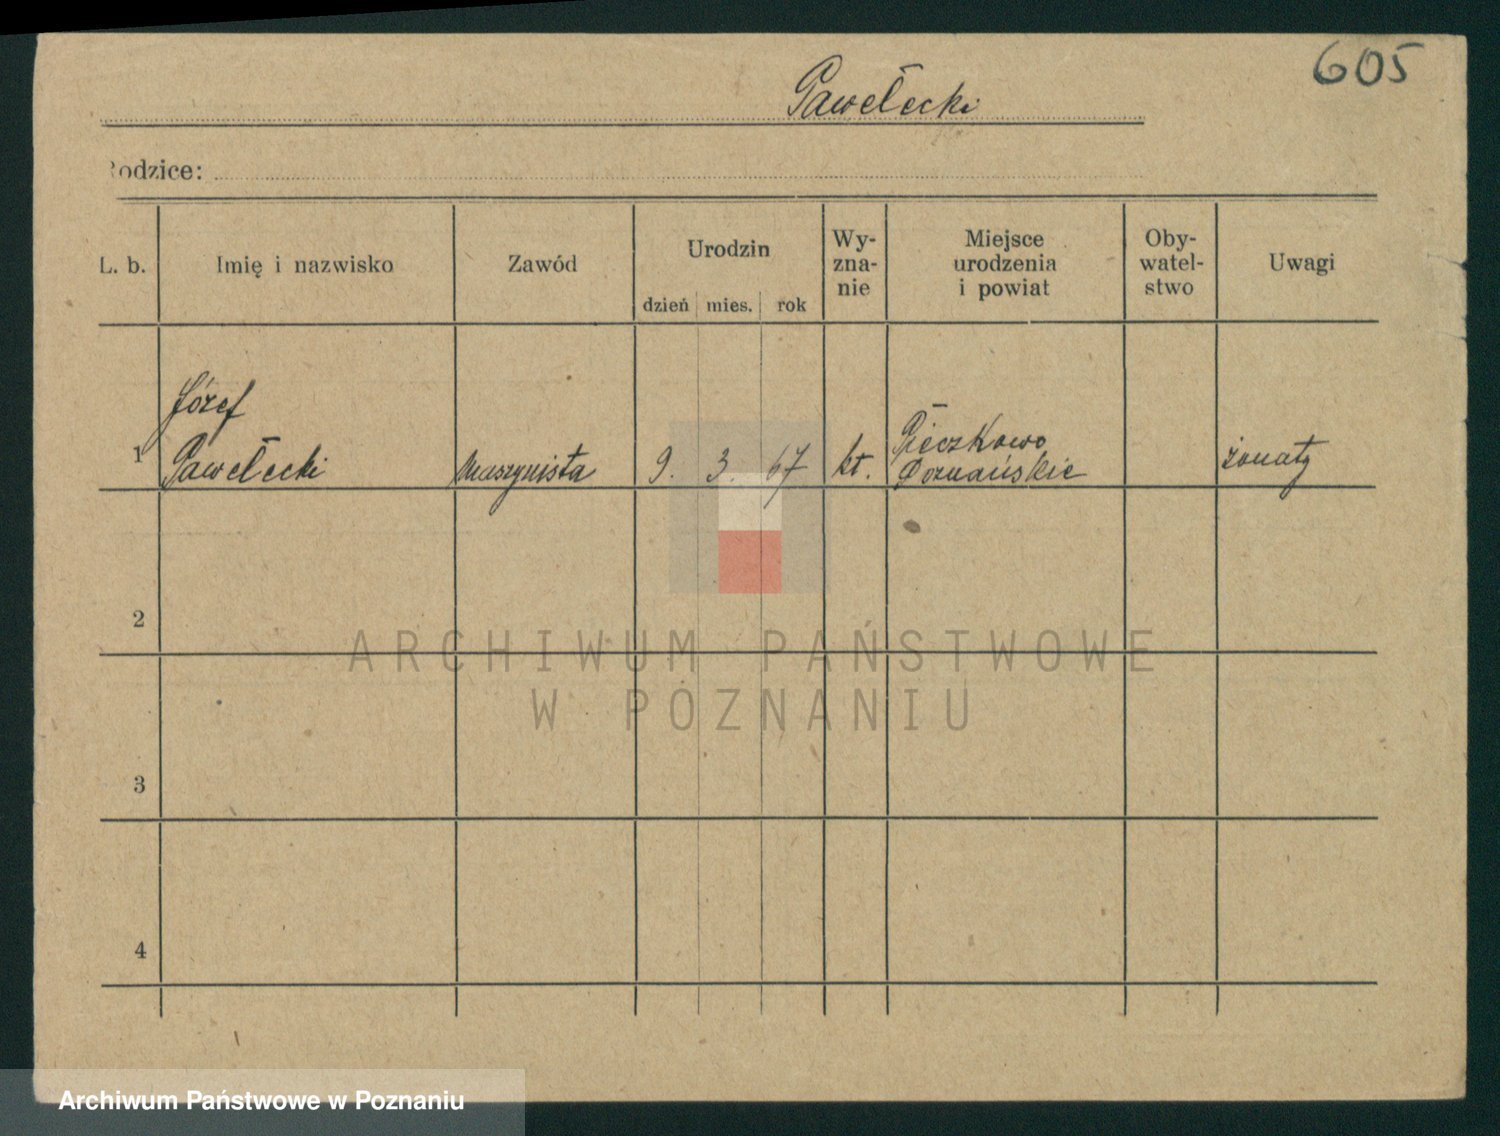 605
Pawełecki
Rodzice:
L. b.
Imię i nazwisko
Zawód
Urodzin
dzień mies. rok
Wy-
zna-
nie
Miejsce
urodzenia
i powiat
Oby-
watel-
stwo
Uwagi
Józef
1 Pawełecki maszynista 9. 3. 67 kt. Pieczkowo
Poznańskie
żonaty
2
3
4
ARCHIWUM PAŃSTWOWE
W POZNANIU
Archiwum Państwowe w Poznaniu